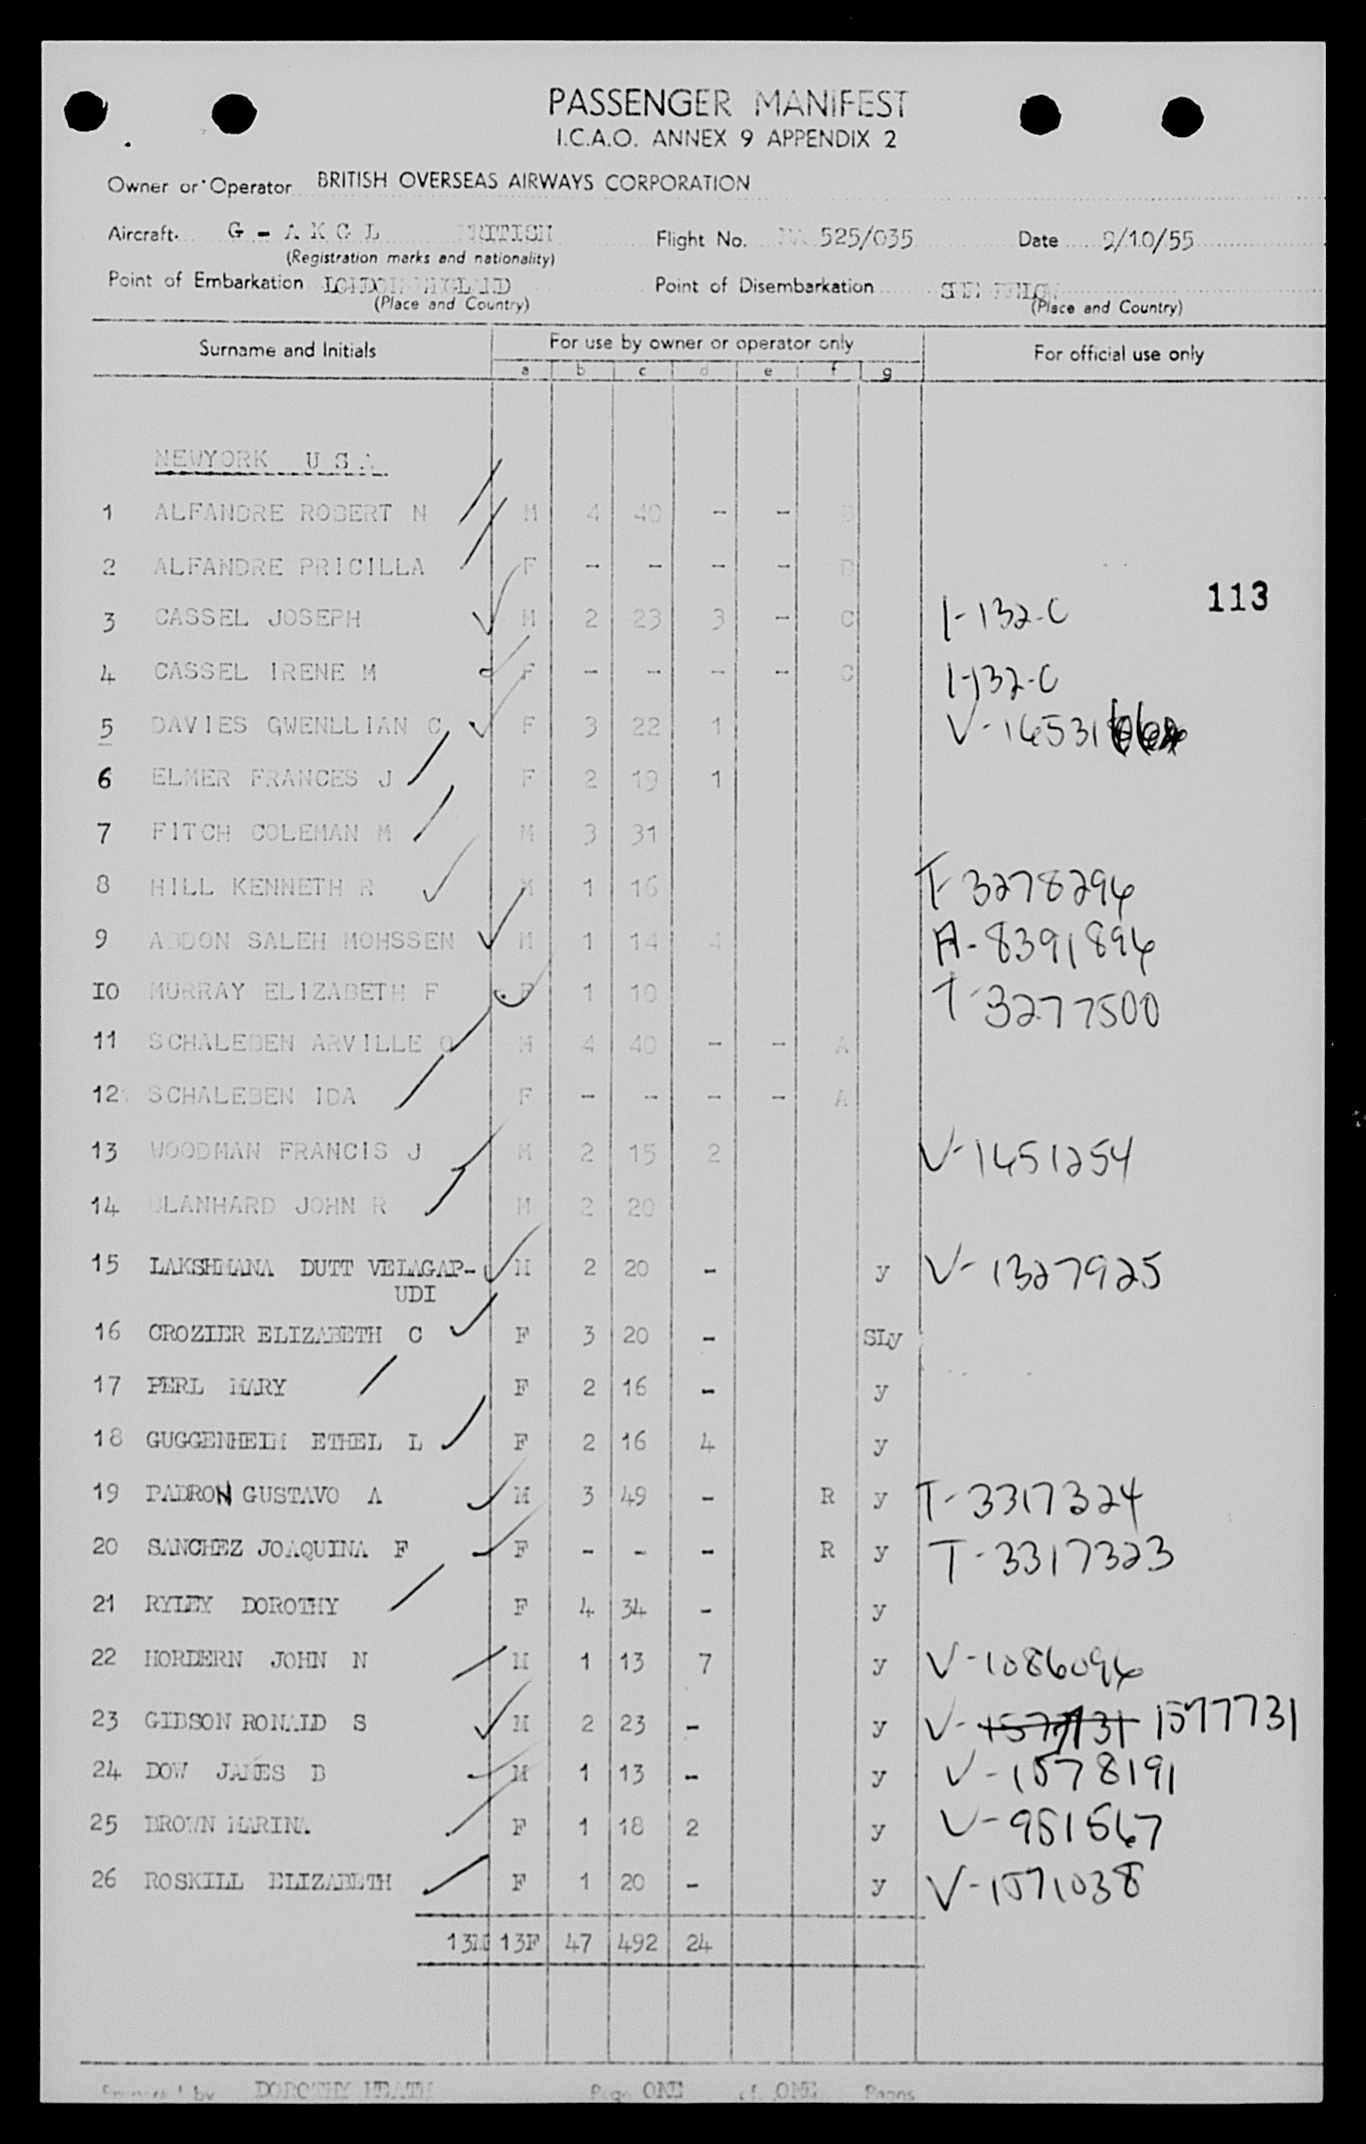 PASSENGER MANIFEST
I.C.A.O. ANNEX 9 APPENDIX 2
Owner or Operator BRITISH OVERSEAS AIRWAYS CORPORATION
Aircraft. G - A K G L BRITISH Flight No. 525/035 Date 9/10/55
(Registration marks and nationality)
Point of Embarkation LONDON ENGLAND Point of Disembarkation SEE BELOW
(Place and Country) (Place and Country)
Surname and Initials For use by owner or operator only For official use only
a b c d e f g
NEWYORK U S A
1 ALFANDRE ROBERT N M 4 40 - - D
2 ALFANDRE PRICILLA F - - - - D
113
3 CASSEL JOSEPH M 2 23 3 - C 1-132-C
4 CASSEL IRENE M F - - - - C 1-132-C
5 DAVIES GWENLLIAN C F 3 22 1 V-16531
6 ELMER FRANCES J F 2 19 1
7 FITCH COLEMAN M M 3 31
8 HILL KENNETH R M 1 16 T-3278296
9 ABDON SALEH MOHSSEN M 1 14 4 A-8391896
10 MURRAY ELIZABETH F F 1 10 T-3277500
11 SCHALEBEN ARVILLE O M 4 40 - - A
12 SCHALEBEN IDA F - - - - A
13 WOODMAN FRANCIS J M 2 15 2 V-1651254
14 BLANHARD JOHN R M 2 20
15 LAKSHMANA DUTT VELAGAP- M 2 20 - y V-1327925
UDI
16 CROZIER ELIZABETH C F 3 20 - SLy
17 PERL MARY F 2 16 - y
18 GUGGENHEIM ETHEL L F 2 16 4 y
19 PADRON GUSTAVO A M 3 49 - R y T-3317324
20 SANCHEZ JOAQUINA F F - - - R y T-3317323
21 RYLEY DOROTHY F 4 34 - y
22 HORDERN JOHN N M 1 13 7 y V-1086096
23 GIBSON RONALD S M 2 23 - y V-1577131 1577731
24 DOW JAMES B M 1 13 - y V-1578191
25 BROWN MARINA F 1 18 2 y V-951567
26 ROSKILL ELIZABETH F 1 20 - y V-1571038
13M 13F 47 492 24
Prepared by DOROTHY HEATH Page ONE of ONE Pages